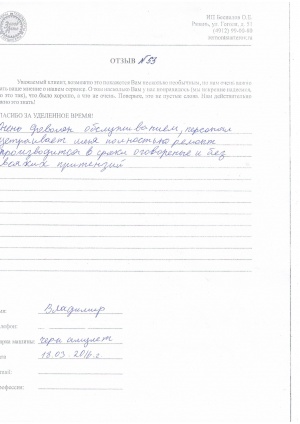 ИП Беззалов О.Е.
Рязань, ул. Гоголя, д. 31
(4912) 95-03-88
ОТЗЫВ №33
Уважаемый клиент, возможно это покажется Вам несколько необычным, но нам очень важно
ваше мнение о нашем сервисе. О том насколько Вам у нас понравилось (мы искренне надеемся,
это так), что было хорошо, а что не очень. Поверьте, это не пустые слова. Нам действительно
это знать!
СПАСИБО ЗА УДЕЛЕННОЕ ВРЕМЯ!
доволен обслуживанием, персонал
устраивает меня полностью ремонт
производится в сроки оговореные и без
всяких притензий
Владимир
марка машины: чери амулет
18.03.2016 г